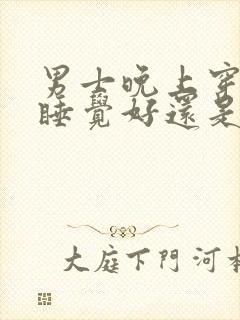 男士晚上穿
睡覺好還是
大庭下門河